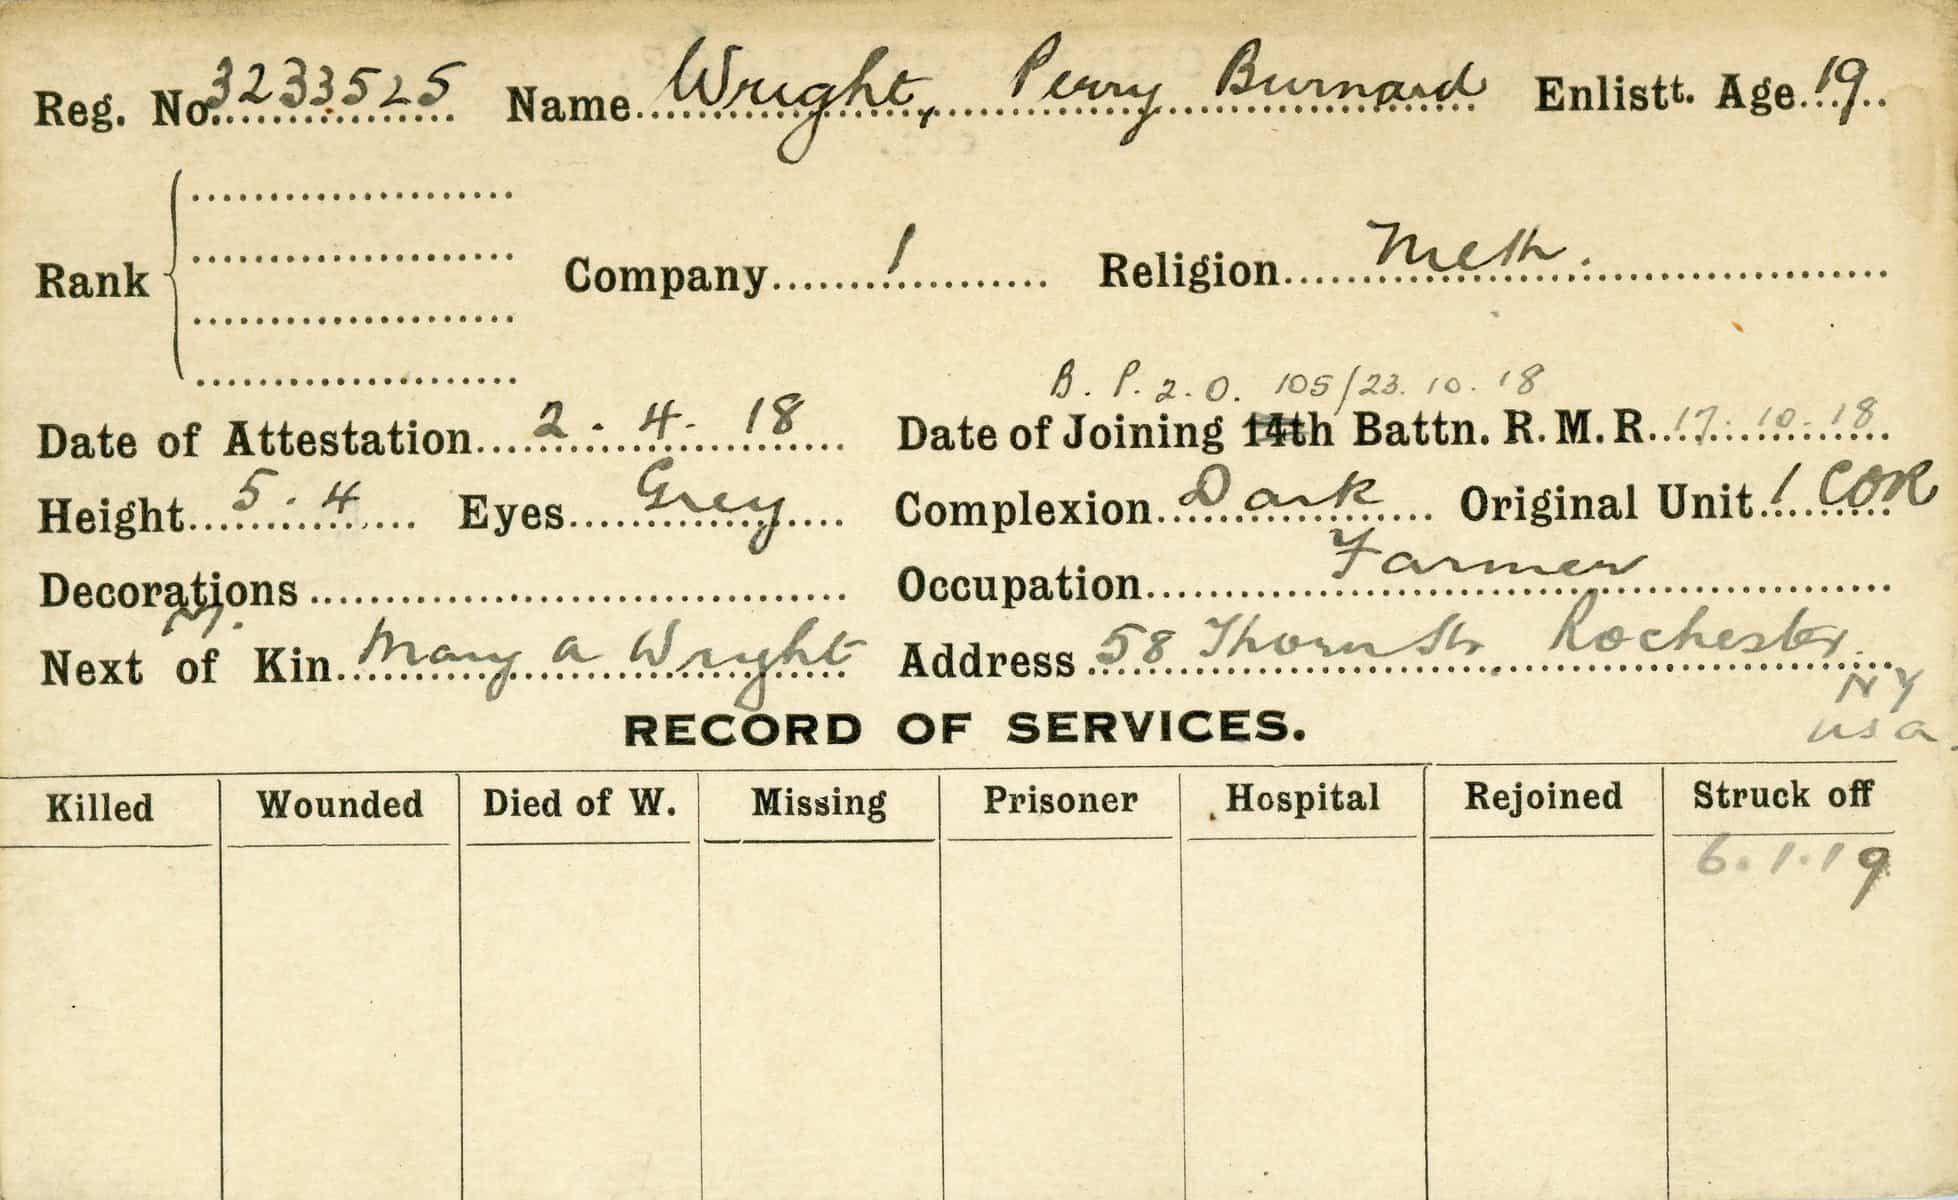 Reg. No. 3233525 Name Wright, Perry Burnard Enlistt. Age 19
Rank Company 1 Religion Meth.
B. P. 2. O. 105/23. 10. 18
Date of Attestation 2. 4. 18 Date of Joining 14th Battn. R. M. R. 17. 10. 18
Height 5. 4 Eyes Grey Complexion Dark Original Unit 1 COR
Decorations Occupation Farmer
M.
Next of Kin Mary A Wright Address 58 Thorn Str. Rochester.
NY
USA.
RECORD OF SERVICES.
Killed Wounded Died of W. Missing Prisoner Hospital Rejoined Struck off
6. 1. 19